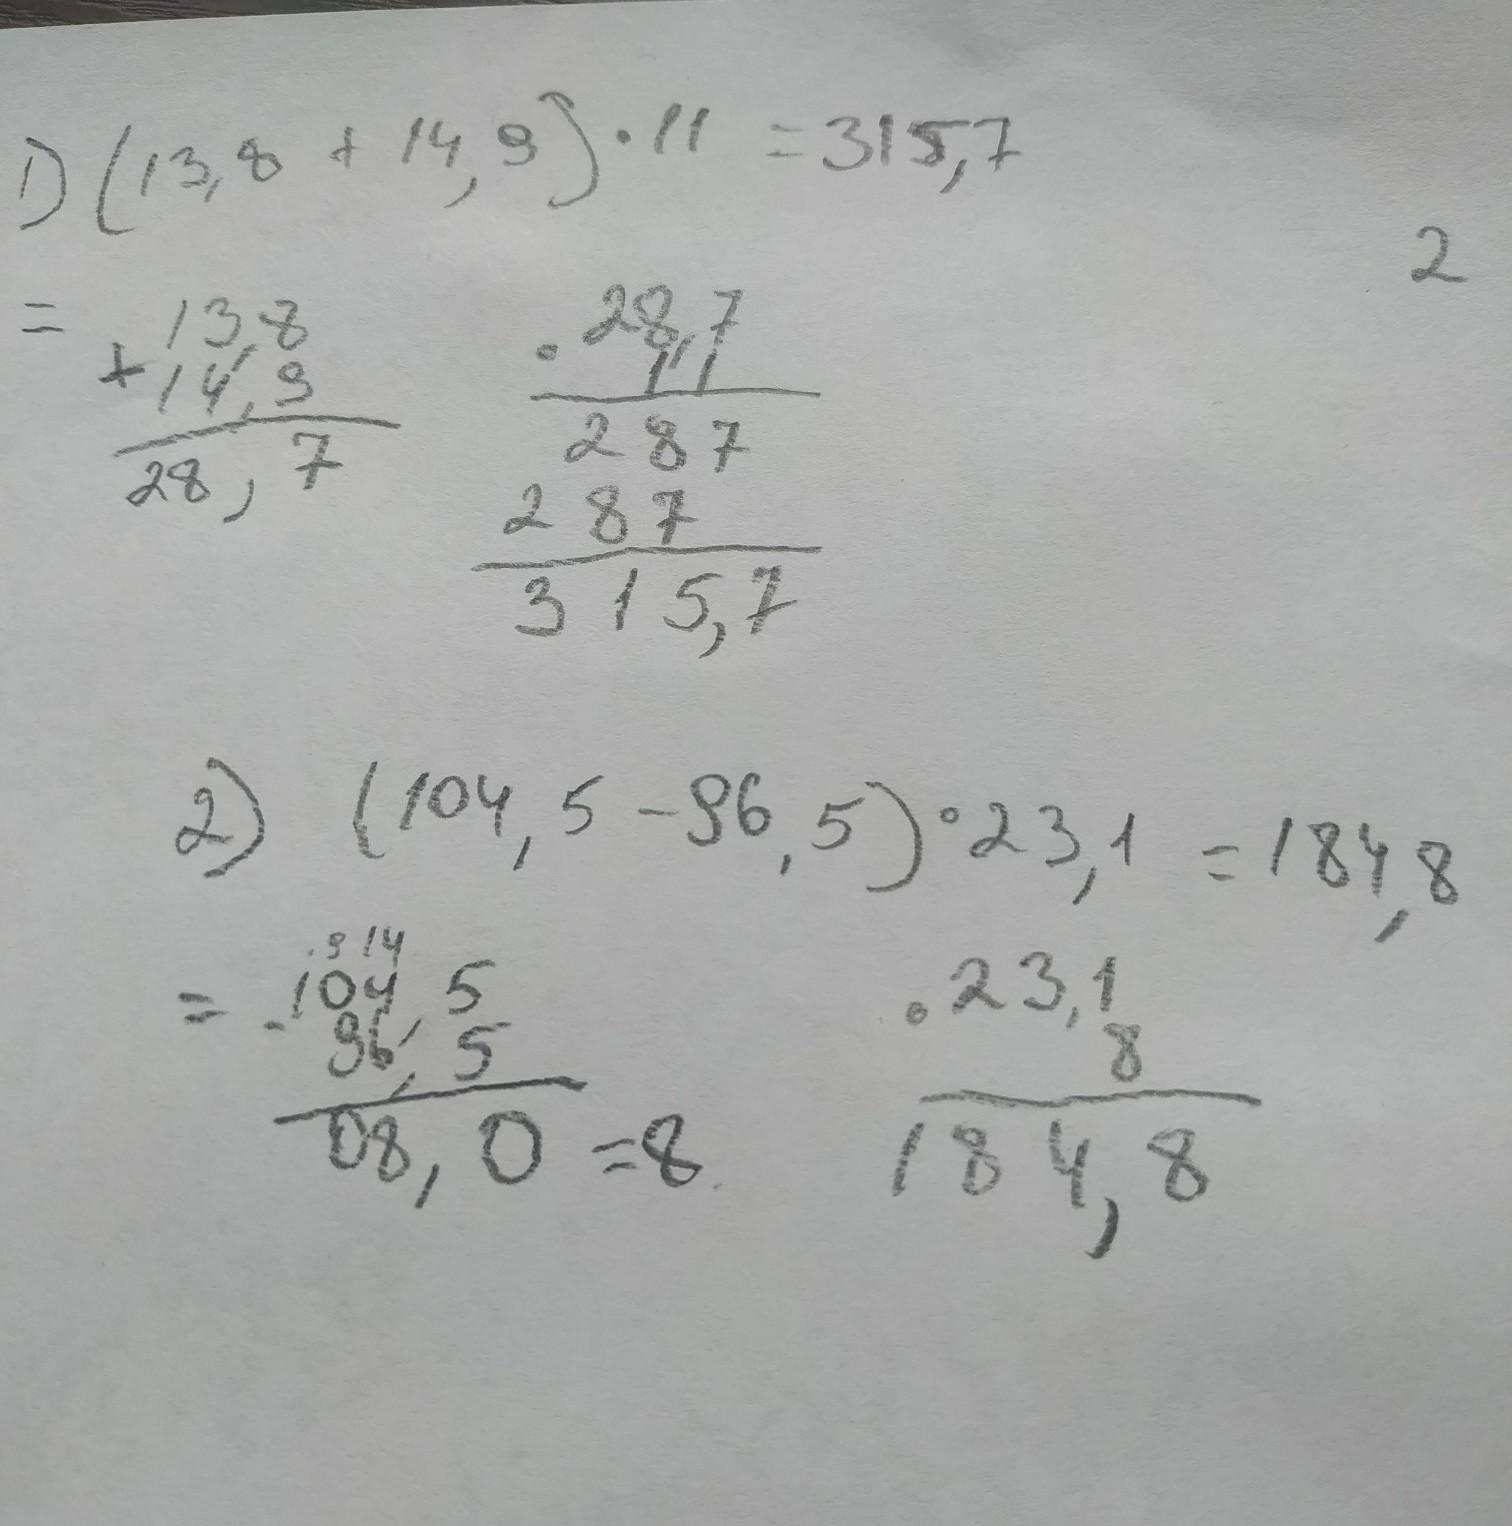 1) (13,8 + 14,9) · 11 = 315,7
2
= 13,8
+ 14,9
28,7
· 28,7
11
287
287
315,7
2) (104,5 - 96,5) · 23,1 = 184,8
9 14
= - 104,5
96,5
08,0 = 8
· 23,1
8
184,8